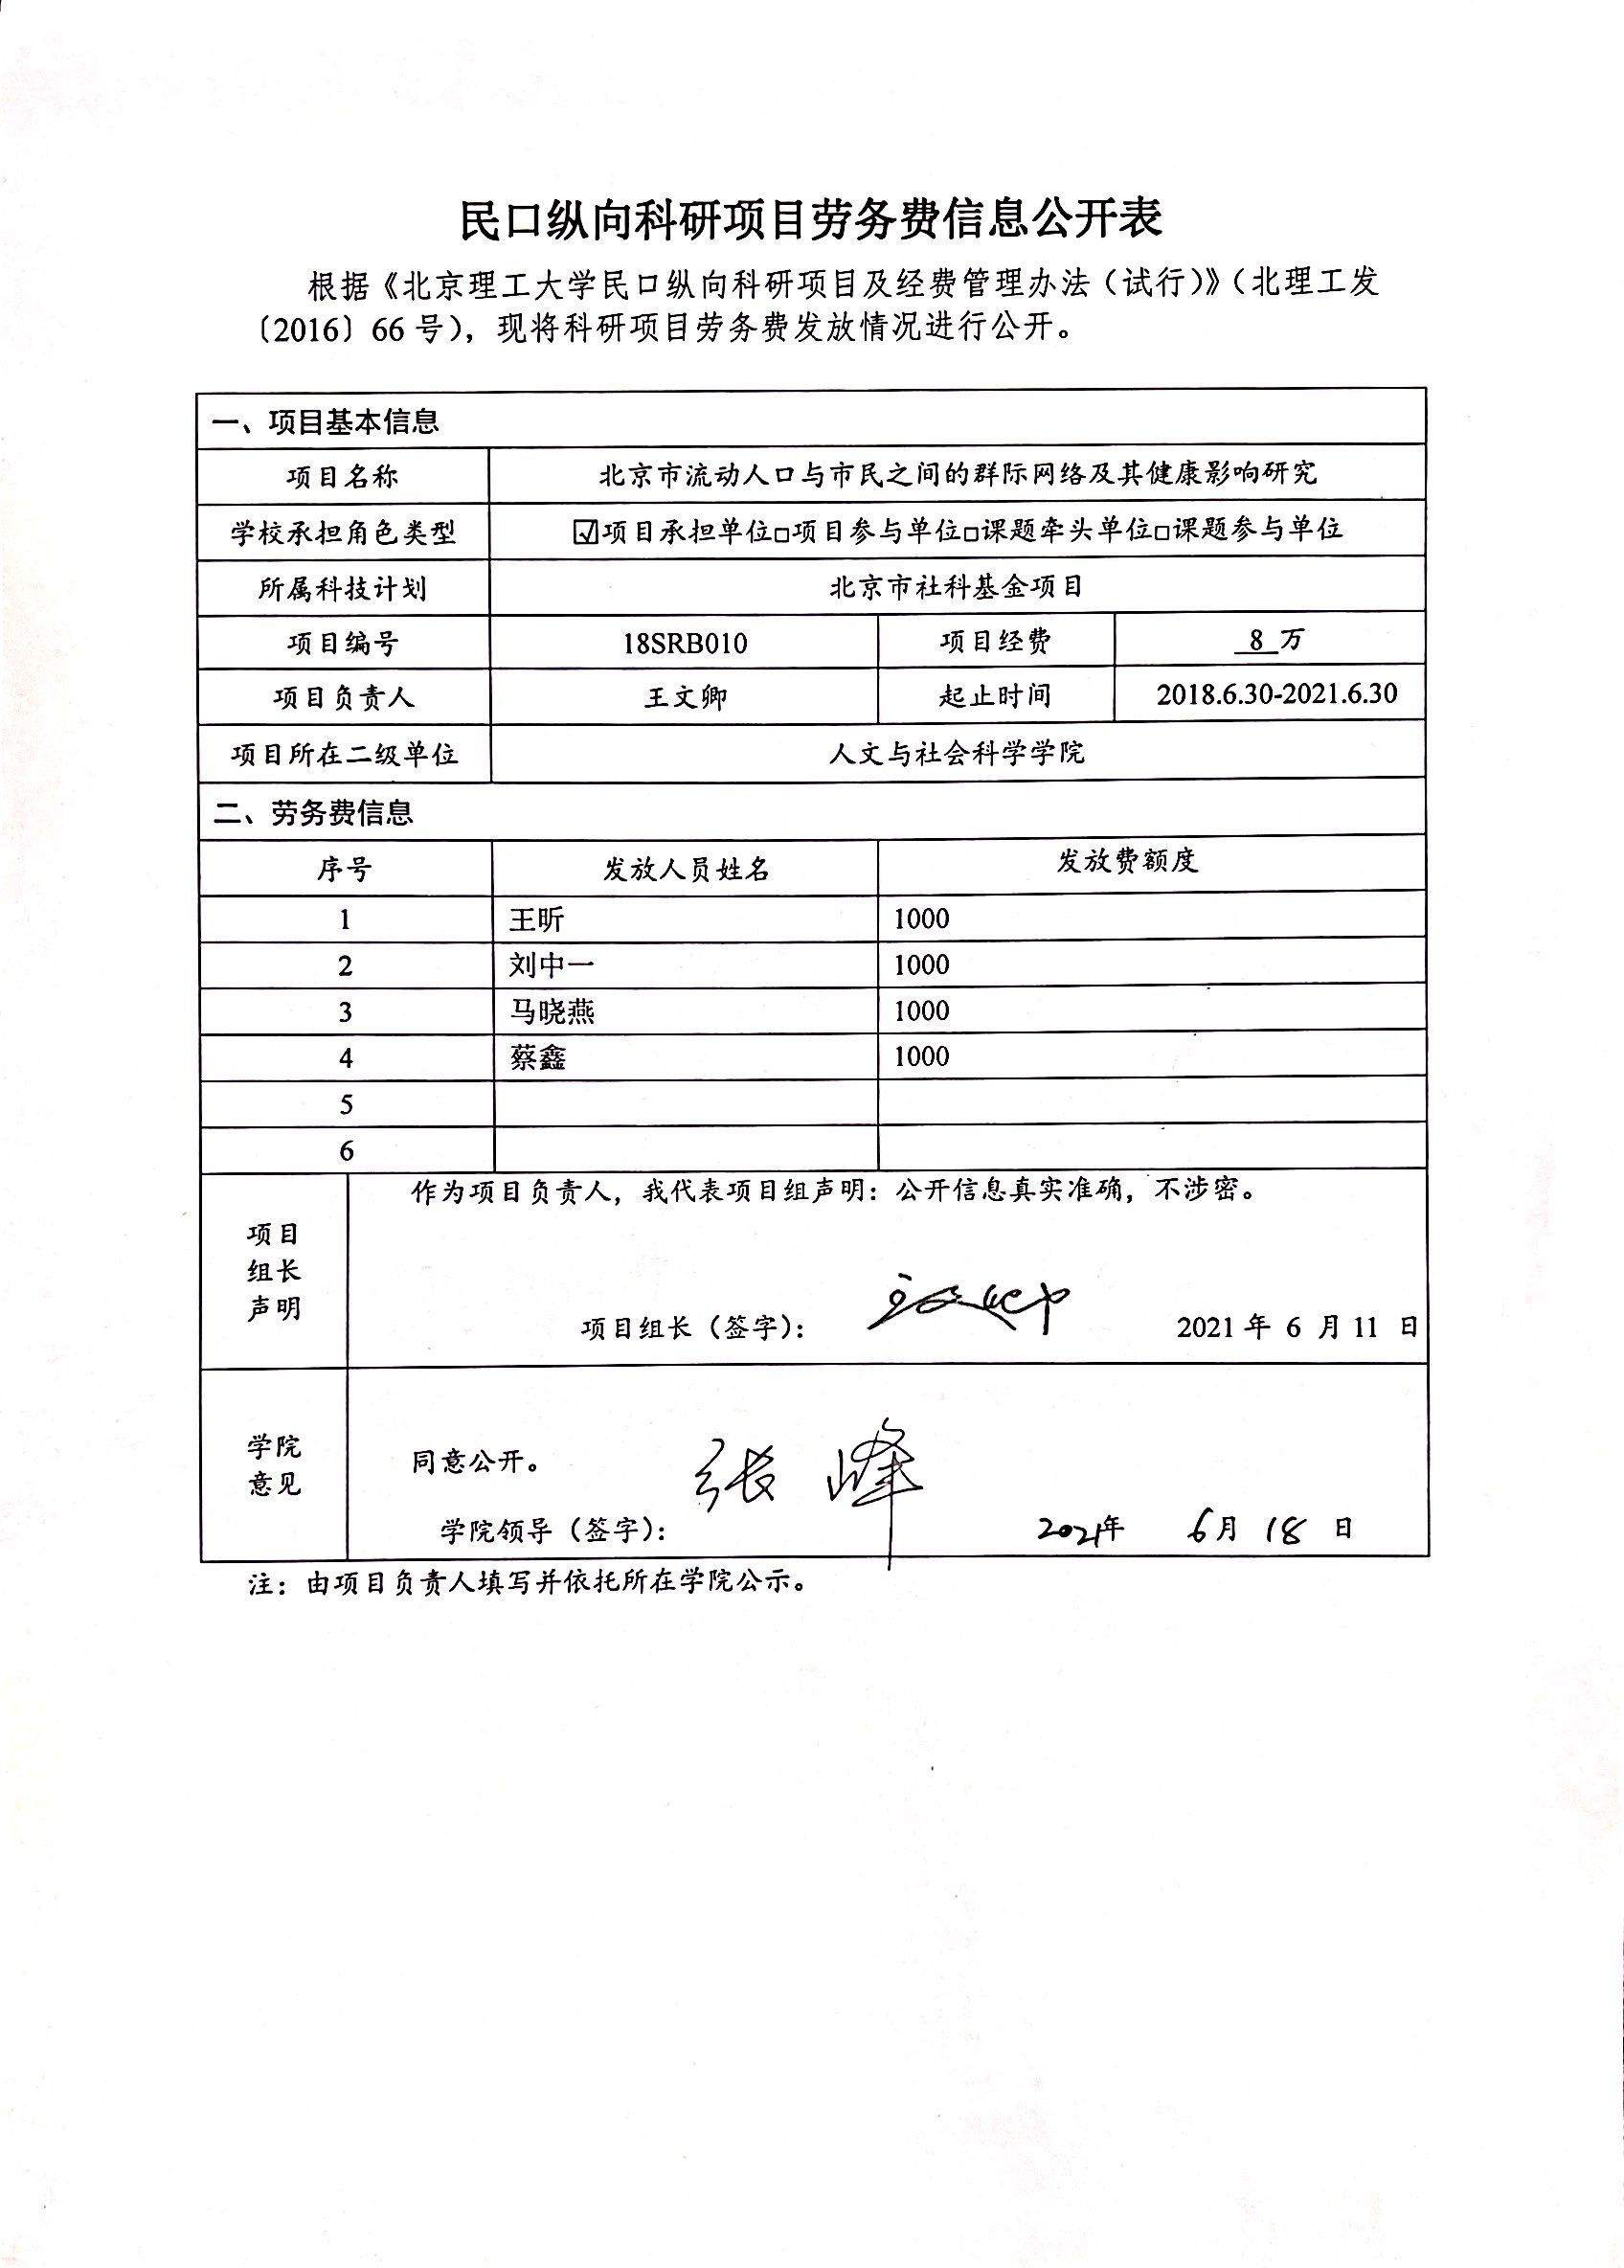 民口纵向科研项目劳务费信息公开表
根据《北京理工大学民口纵向科研项目及经费管理办法（试行）》（北理工发
〔2016〕66 号），现将科研项目劳务费发放情况进行公开。
一、项目基本信息
项目名称 北京市流动人口与市民之间的群际网络及其健康影响研究
学校承担角色类型 ☑项目承担单位□项目参与单位□课题牵头单位□课题参与单位
所属科技计划 北京市社科基金项目
项目编号 18SRB010 项目经费 8 万
项目负责人 王文卿 起止时间 2018.6.30-2021.6.30
项目所在二级单位 人文与社会科学学院
二、劳务费信息
序号 发放人员姓名 发放费额度
1 王昕 1000
2 刘中一 1000
3 马晓燕 1000
4 蔡鑫 1000
5
6
项目
组长
声明
作为项目负责人，我代表项目组声明：公开信息真实准确，不涉密。
项目组长（签字）： 王文卿 2021 年 6 月 11 日
学院
意见
同意公开。 张峰
学院领导（签字）： 2021年 6月 18 日
注：由项目负责人填写并依托所在学院公示。